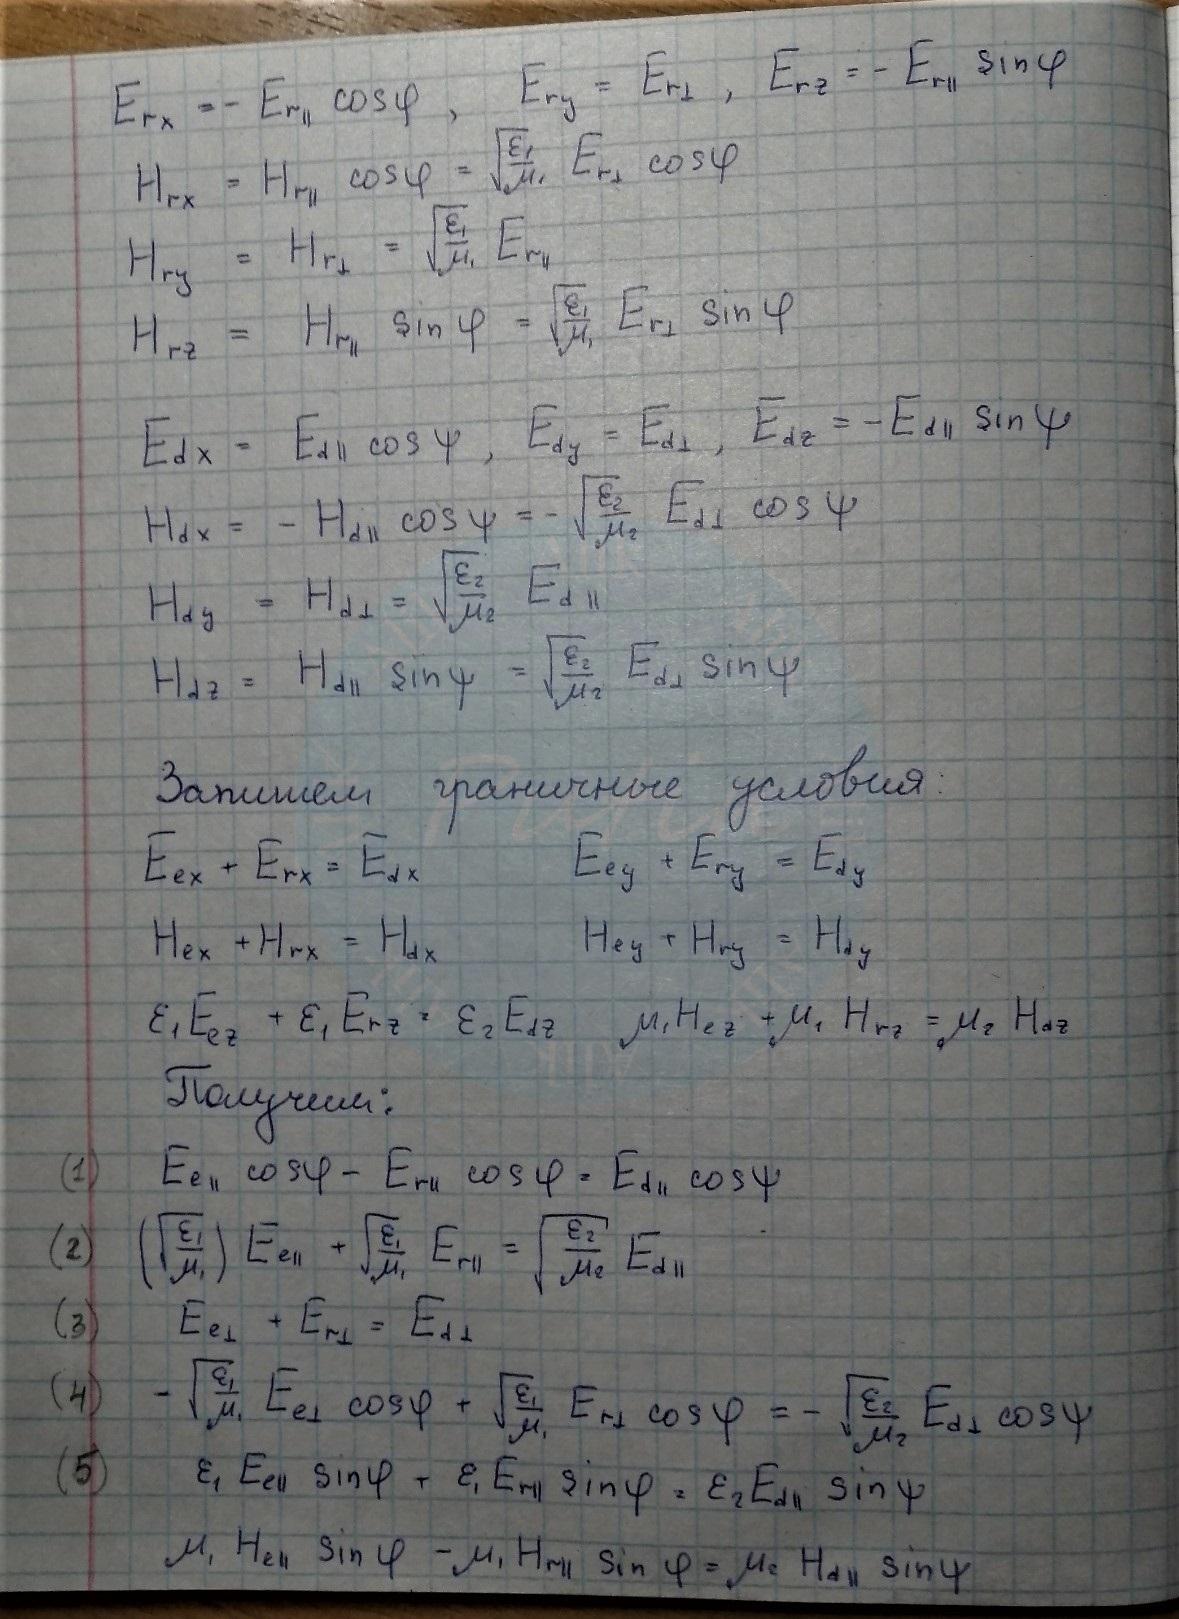 E_{rx} = - E_{r||} cosφ , E_{ry} = E_{r⊥} , E_{rz} = - E_{r||} sinφ
H_{rx} = H_{r||} cosφ = √(ε₁/μ₁) E_{r⊥} cosφ
H_{ry} = H_{r⊥} = √(ε₁/μ₁) E_{r||}
H_{rz} = H_{r||} sinφ = √(ε₁/μ₁) E_{r⊥} sinφ
E_{dx} = E_{d||} cosψ , E_{dy} = E_{d⊥} , E_{dz} = - E_{d||} sinψ
H_{dx} = - H_{d||} cosψ = - √(ε₂/μ₂) E_{d⊥} cosψ
H_{dy} = H_{d⊥} = √(ε₂/μ₂) E_{d||}
H_{dz} = H_{d||} sinψ = √(ε₂/μ₂) E_{d⊥} sinψ
Запишем граничные условия:
E_{ex} + E_{rx} = E_{dx} E_{ey} + E_{ry} = E_{dy}
H_{ex} + H_{rx} = H_{dx} H_{ey} + H_{ry} = H_{dy}
ε₁E_{ez} + ε₁E_{rz} = ε₂E_{dz} μ₁H_{ez} + μ₁H_{rz} = μ₂H_{dz}
Получим:
(1) E_{e||} cosφ - E_{r||} cosφ = E_{d||} cosψ
(2) (√(ε₁/μ₁)) E_{e||} + √(ε₁/μ₁) E_{r||} = √(ε₂/μ₂) E_{d||}
(3) E_{e⊥} + E_{r⊥} = E_{d⊥}
(4) - √(ε₁/μ₁) E_{e⊥} cosφ + √(ε₁/μ₁) E_{r⊥} cosφ = - √(ε₂/μ₂) E_{d⊥} cosψ
(5) ε₁E_{e||} sinφ + ε₁E_{r||} sinφ = ε₂E_{d||} sinψ
μ₁ H_{e||} sinφ - μ₁H_{r||} sinφ = μ₂ H_{d||} sinψ